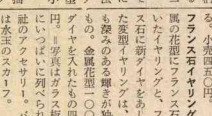 る。小売四五〇円。
フランス石イヤリング
属の花型にフランス石
いたイヤリングと、フ
ス石に新ダイヤをあ
た変型イヤリングは、
も深みのある輝きが独
もの。金属花型一〇〇
ダイヤを入れたもの四
円。＝写真はガラス板
にいっぱいに列べられ
社のアクセサリー。バ
は水玉のスカーフ。